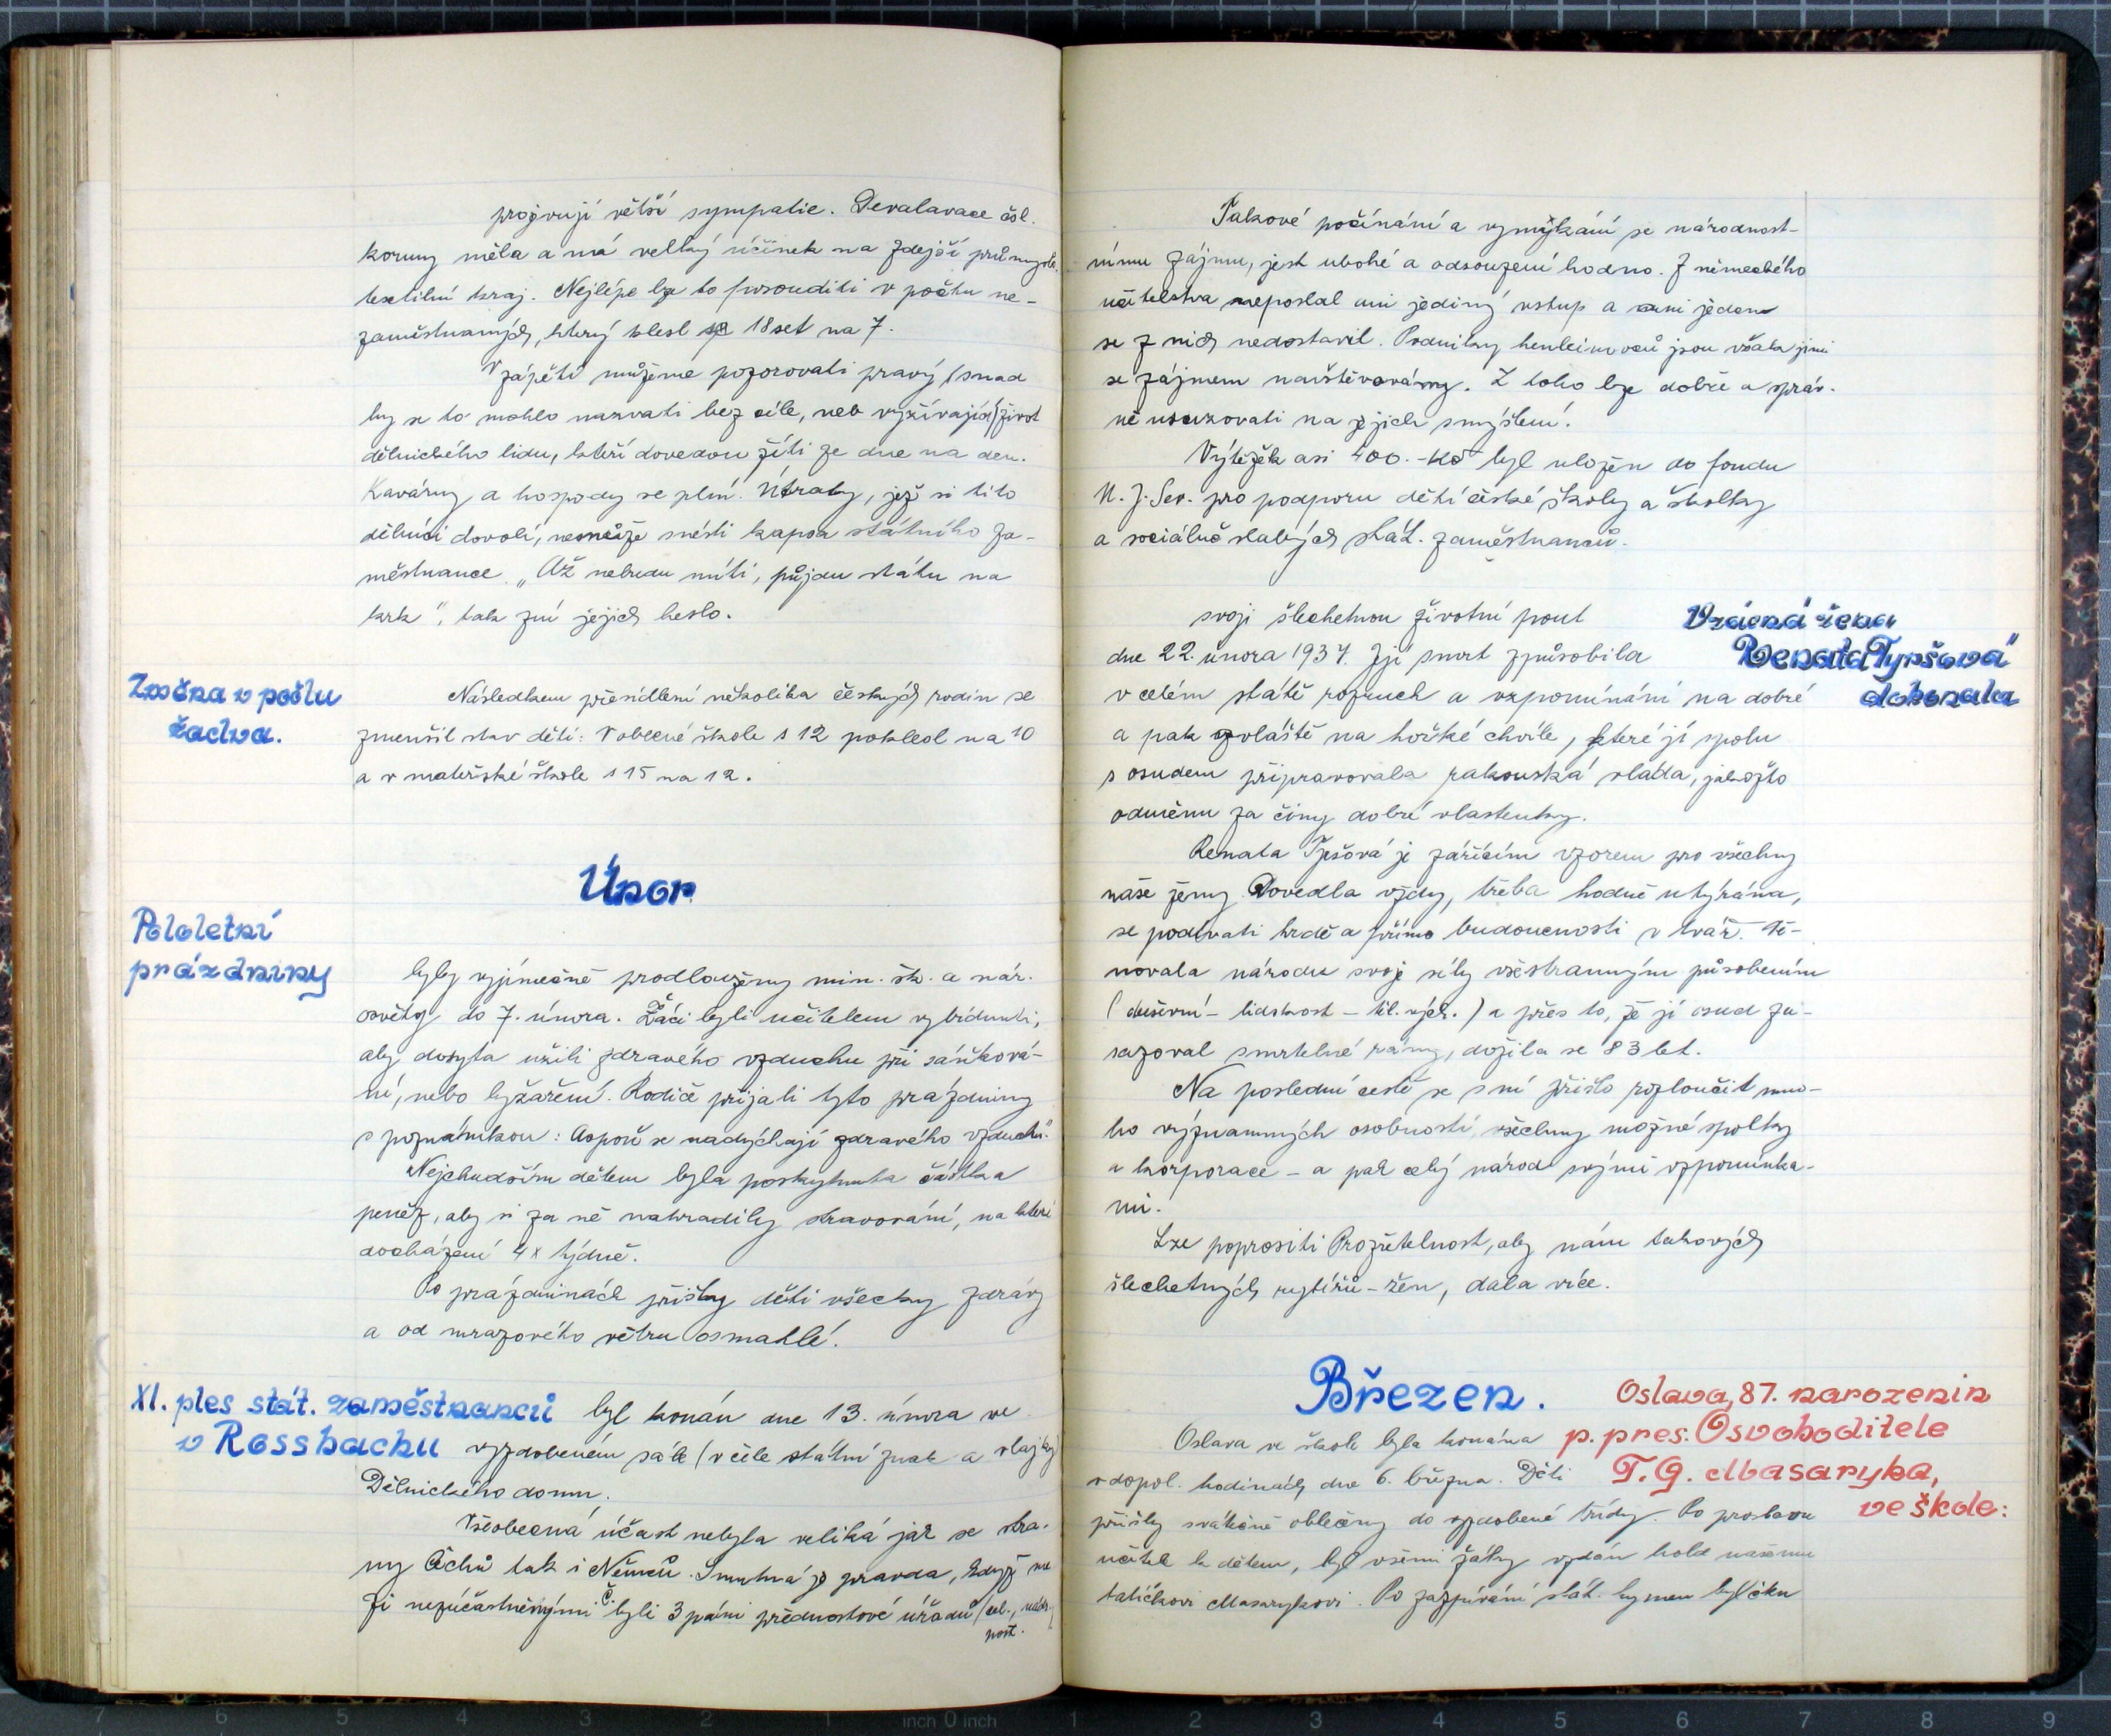 projevují větší sympatie. Devalavace čsl.
koruny měla a má velký účinek na zdejší průmysl.
textilní kraj. Nejlépe lze to posouditi v počtu ne-
zaměstnaných, který klesl ze 18set na 7.
V zápětí můžeme pozorovati pravý (snad
by se to mohlo nazvati bez cíle, neb vyžívající) život
dělnického lidu, kteří dovedou žíti ze dne na den.
Kavárny a hospody se plní. Útraty, jež si tito
dělníci dovolí, nemůže snésti kapsa státního za-
městnance. „Až nebudu míti, půjdu státu na
krk", tak zní jejich heslo.
Změna v počtu
žactva.
Následkem přesídlení několika českých rodin se
zmenšil stav dětí: V obecné škole s 12 poklesl na 10
a v mateřské škole s 15 na 12.
Únor
Pololetní
prázdniny
byly vyjímečně prodlouženy min. šk. a nár.
osvěty do 7. února. Žáci byli učitelem vybídnuti,
aby dosyta užili zdravého vzduchu při sáňková-
ní, nebo lyžaření. Rodiče přijali tyto prázdniny
s poznámkou: Aspoň se nadýchají zdravého vzduchu."
Nejchudším dětem byla poskytnuta částka
peněz, aby si za ně nahradily stravování, na které
docházení 4x týdně.
Po prázdninách přišly děti všecky zdrávy
a od mrazového větru osmahlé.
XI. ples stát. zaměstnanců byl konán dne 13. února ve
v Rossbachu vyzdobeném sále (v čele státní znak a vlajky)
Dělnického domu.
Všeobecná účast nebyla veliká jak se stra-
ny Čechů tak i Němců. Smutná je pravda, když me-
zi nezúčastněnými Č. byli 3 páni přednostové úřadů (cel., nádr.,
pošt.
Takové počínání a vymýkání se národnost-
nímu zájmu, jest ubohé a odsouzení hodno. Z německého
učitelstva neposlal ani jediný vstup a ani jeden
se z nich nedostavil. Podniky henleinovců jsou však jimi
se zájmem navštěvovány. Z toho lze dobře a správ-
ně usuzovati na jejich smýšlení.
Výtěžek asi 400.-Kč byl uložen do fondu
N. J. Sev. pro podporu dětí české školy a školky
a sociálně slabých stát. zaměstnanců.
Vzácná žena
Renata Tyršová"
dokonala
svoji šlechetnou životní pout
dne 22. února 1937. Její smrt způsobila
v celém státě rozruch a vzpomínání na dobré
a pak zvláště na hořké chvíle, které jí spolu
s osudem připravovala rakouská vláda, jakožto
odměnu za činy dobré vlastenky.
Renata Tyršová je zářícím vzorem pro všechny
naše ženy. Dovedla vždy, třeba hodně utýrána,
se podívati hrdě a přímo budoucnosti v tvář. Vě-
novala národu svoje síly všestranným působením
(duševní - lidskost - těl. vých.) a přes to, že jí osud za-
sazoval smrtelné rány, dožila se 83 let.
Na poslední cestě se s ní přišlo rozloučit mno-
ho význammných osobností, všechny možné spolky
a korporace - a pak celý národ svými vzpomínka-
mi.
Lze poprositi Prozřetelnost, aby nám takových
šlechetných rytířů - žen, dala více.
Březen.
Oslava 87. narozenin
p. pres. Osvoboditele
T. G. Masaryka,
ve škole:
Oslava ve škole byla konána
v dopol. hodinách dne 6. března. Děti
přišly svátečně oblečeny do vyzdobené třídy. Po proslovu
učitele k dětem, byl všemi žáky vzdán hold našemu
tatíčkovi Masarykovi. Po zazpívání stát. hymen byl čku